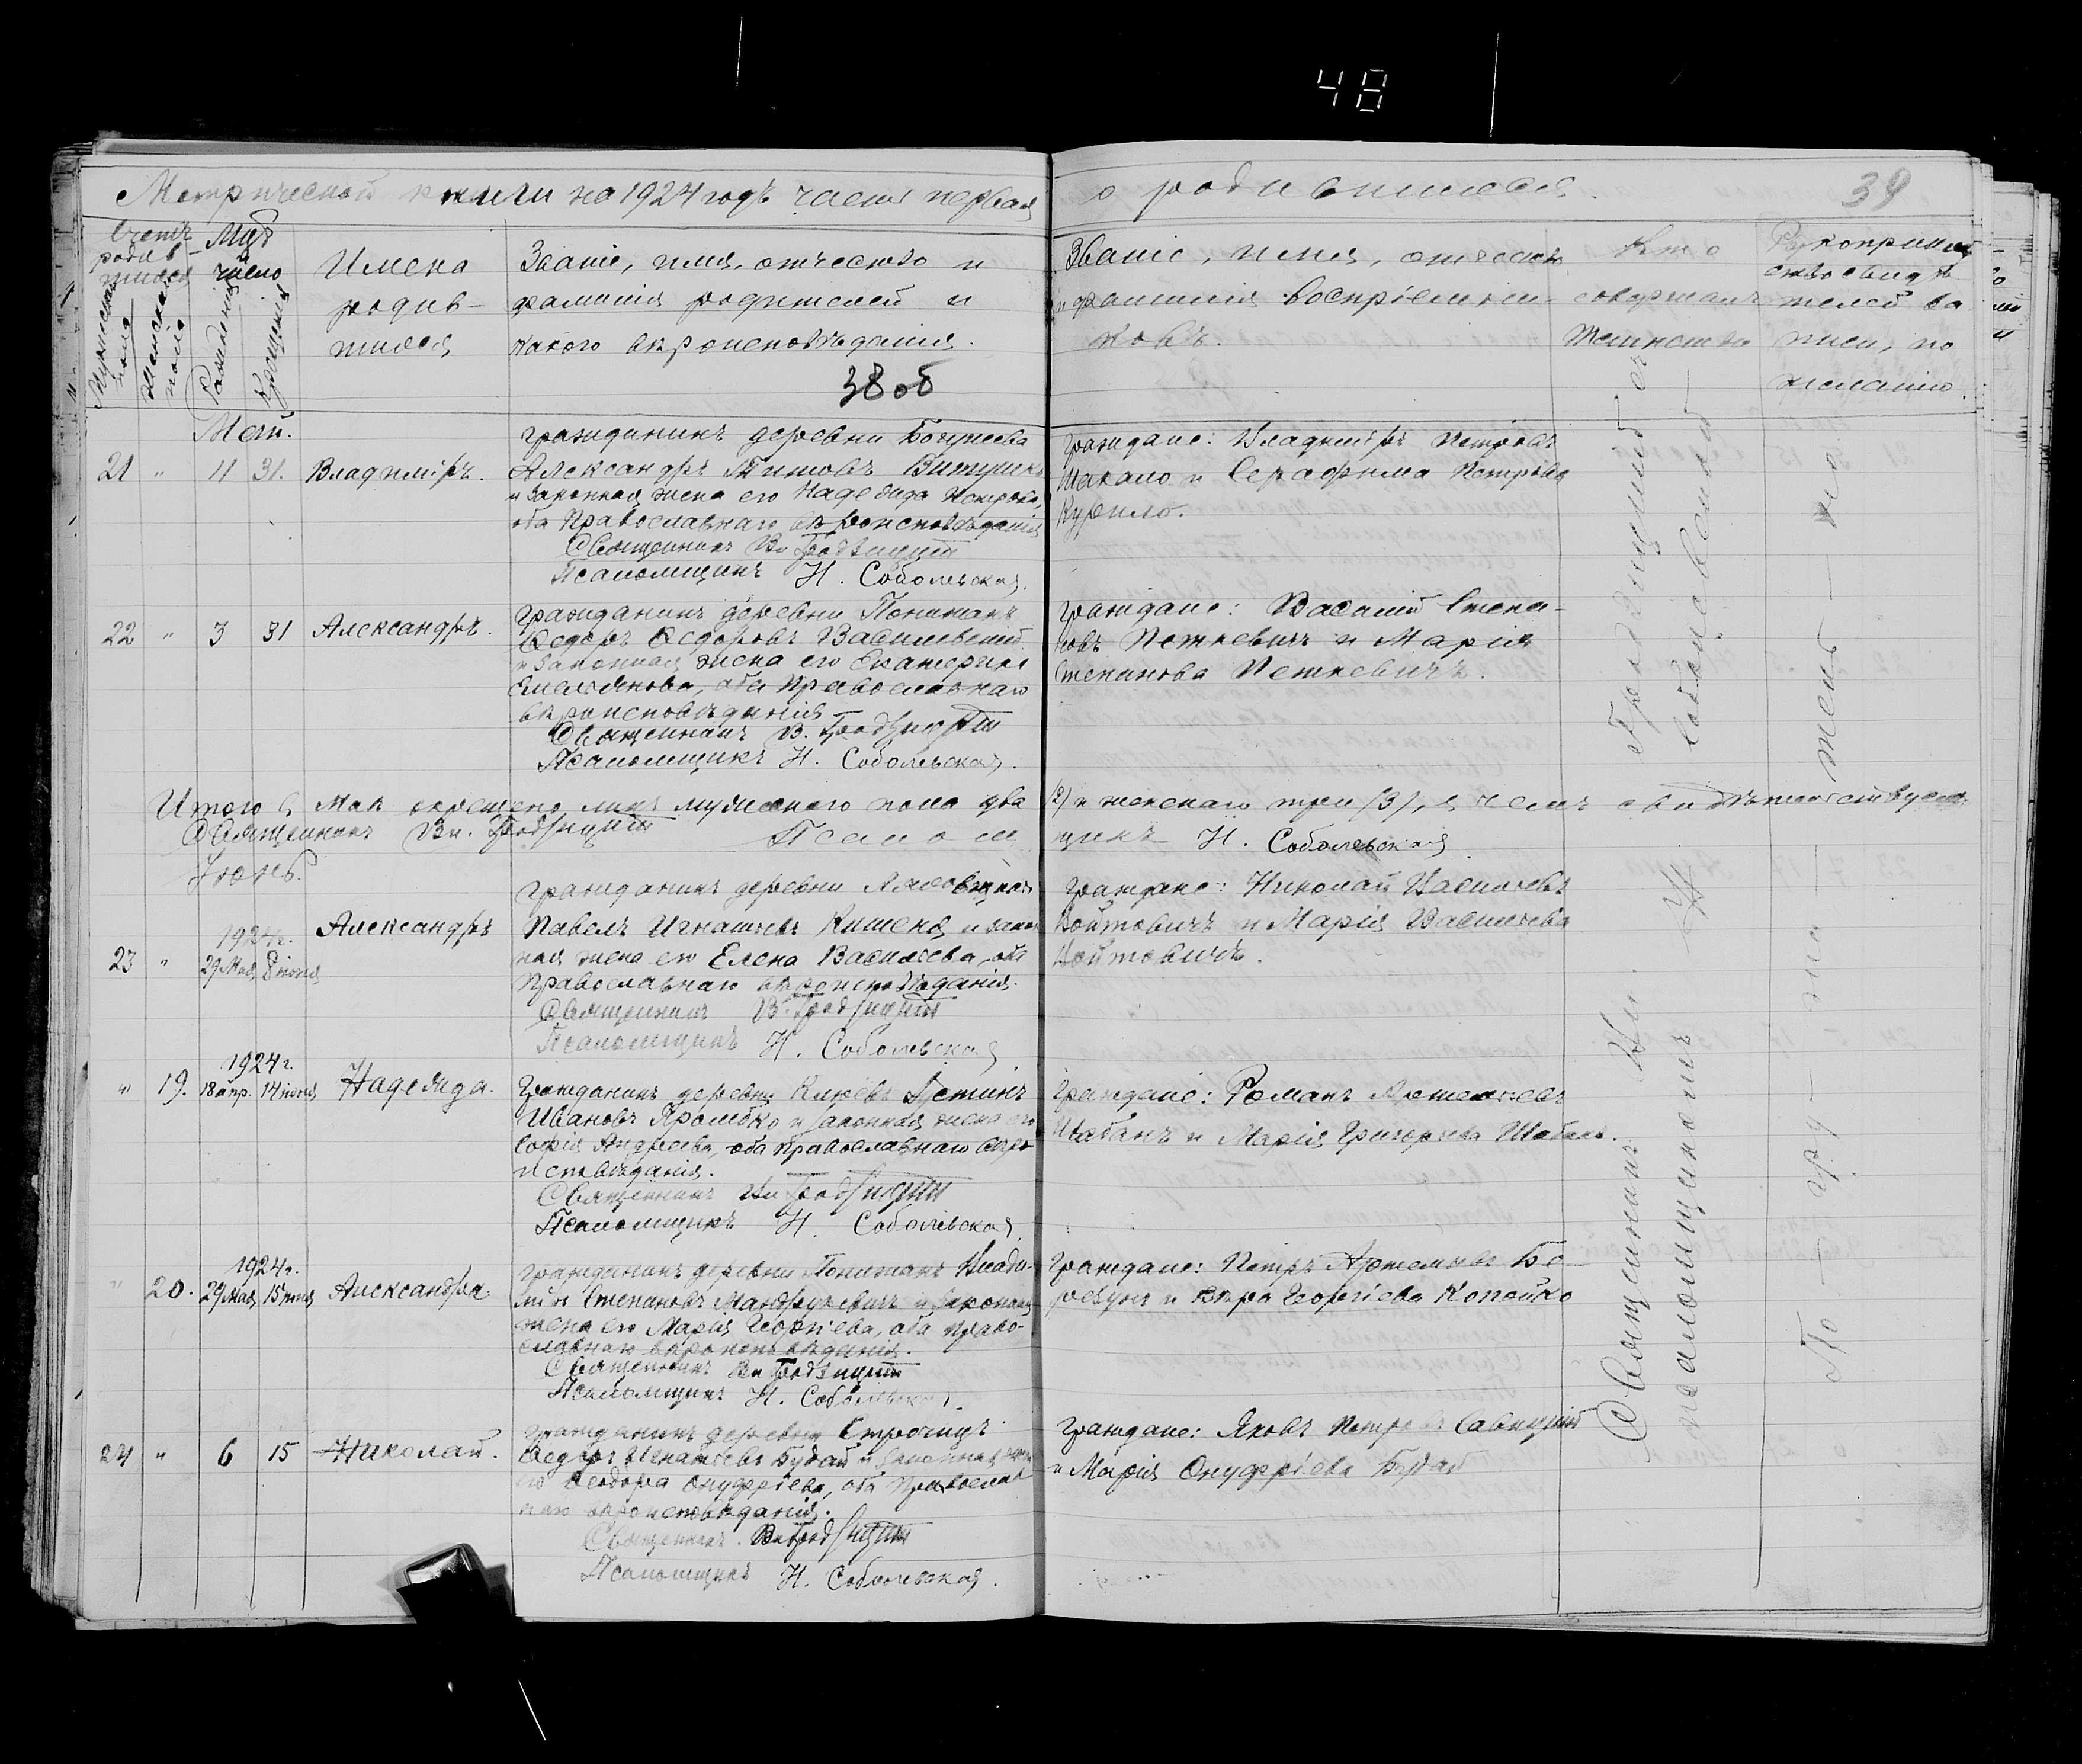 48
Метрической книги на 1924 годъ часть первая о родившихся.
39
Счетъ родив-шихся
Мужескаго пола
Женскаго пола
Мѣс. и число
Рожденія
Крещенія
Имена
родив-
шихся
Званіе, имя, отчество и
фамилія родителей и
какого вѣроисповѣданія.
38 об
Званіе, имя, отчество
и фамилія воспріемни-
ковъ.
Кто
совершалъ
таинство
Рукоприклад
ство свидѣ
телей за
писи, по
желанію.
Май.
21 " 11 31. Владиміръ.
Гражданинъ деревни
Александръ Титовъ Витушко
и законная жена его Надежда Петрова,
оба Православнаго вѣроисповѣданія
Священникъ Вл. Гродзицкій
Псаломщикъ Н. Соболевская.
Граждане: Владиміръ Петровъ
Шакало и Серафима Петрова
Курило.
22 " 3 31 Александръ.
Гражданинъ деревни Понижанъ
Ѳедоръ Ѳедоровъ Василевскій
и законная жена его Екатерина
Емельянова, оба Православнаго
вѣроисповѣданія
Священникъ В. Гродзицкій
Псаломщикъ Н. Соболевская.
Граждане: Василій Степа-
новъ Петкевичъ и Марія
Степанова Петкевичъ.
Итого въ Маѣ окрещено лицъ мужеского пола два (2) и женскаго три (3), въ чемъ свидѣтельствуемъ
Священникъ Вл. Гродзицкій Псалом
щикъ Н. Соболевская.
Іюнь.
23 " 1924 г. 29 Мая 8 іюня Александръ
Гражданинъ деревни
Павелъ Игнатьевъ Кишеня и закон
ная жена его Елена Васильева, оба
Православнаго вѣроисповѣданія.
Священникъ В. Гродзицкій
Псаломщикъ Н. Соболевская
Граждане: Николай Васильевъ
Войтовичъ и Марія Васильева
Войтовичъ.
" 19. 1924 г. 18 апр. 14 іюня Надежда.
Гражданинъ деревни Клюевъ Устинъ
Ивановъ и законная жена его
Софія Андреева, оба православнаго вѣро
исповѣданія.
Священникъ Вл. Гродзицкій
Псаломщикъ Н. Соболевская
Граждане: Романъ Артемьевъ
Шабанъ и Марія Григорьева Шабанъ.
" 20. 1924 г. 29 Мая 15 іюня Александра.
Гражданинъ деревни Понижанъ Влади-
міръ Степановъ Мандрукевичъ и законная
жена его Марія Георгіева, оба право-
славнаго вѣроисповѣданія.
Священникъ Вл. Гродзицкій
Псаломщикъ Н. Соболевская.
Граждане: Петръ Артемьевъ Бо-
и Вѣра Георгіева Копейко
24 " 6 15 Николай.
Гражданинъ деревни Строчицъ
Ѳедоръ Игнатьевъ Будай и законная жена
его Ѳеодора Онуфріева, оба православ
наго вѣроисповѣданія.
Священникъ. Вл. Гродзицкій
Псаломщикъ Н. Соболевская.
Граждане: Яковъ Петровъ Савицкій
и Марія Онуфріева Будай
Священникъ Вл. Гродзицкій съ
псаломщикомъ Н. Соболевской